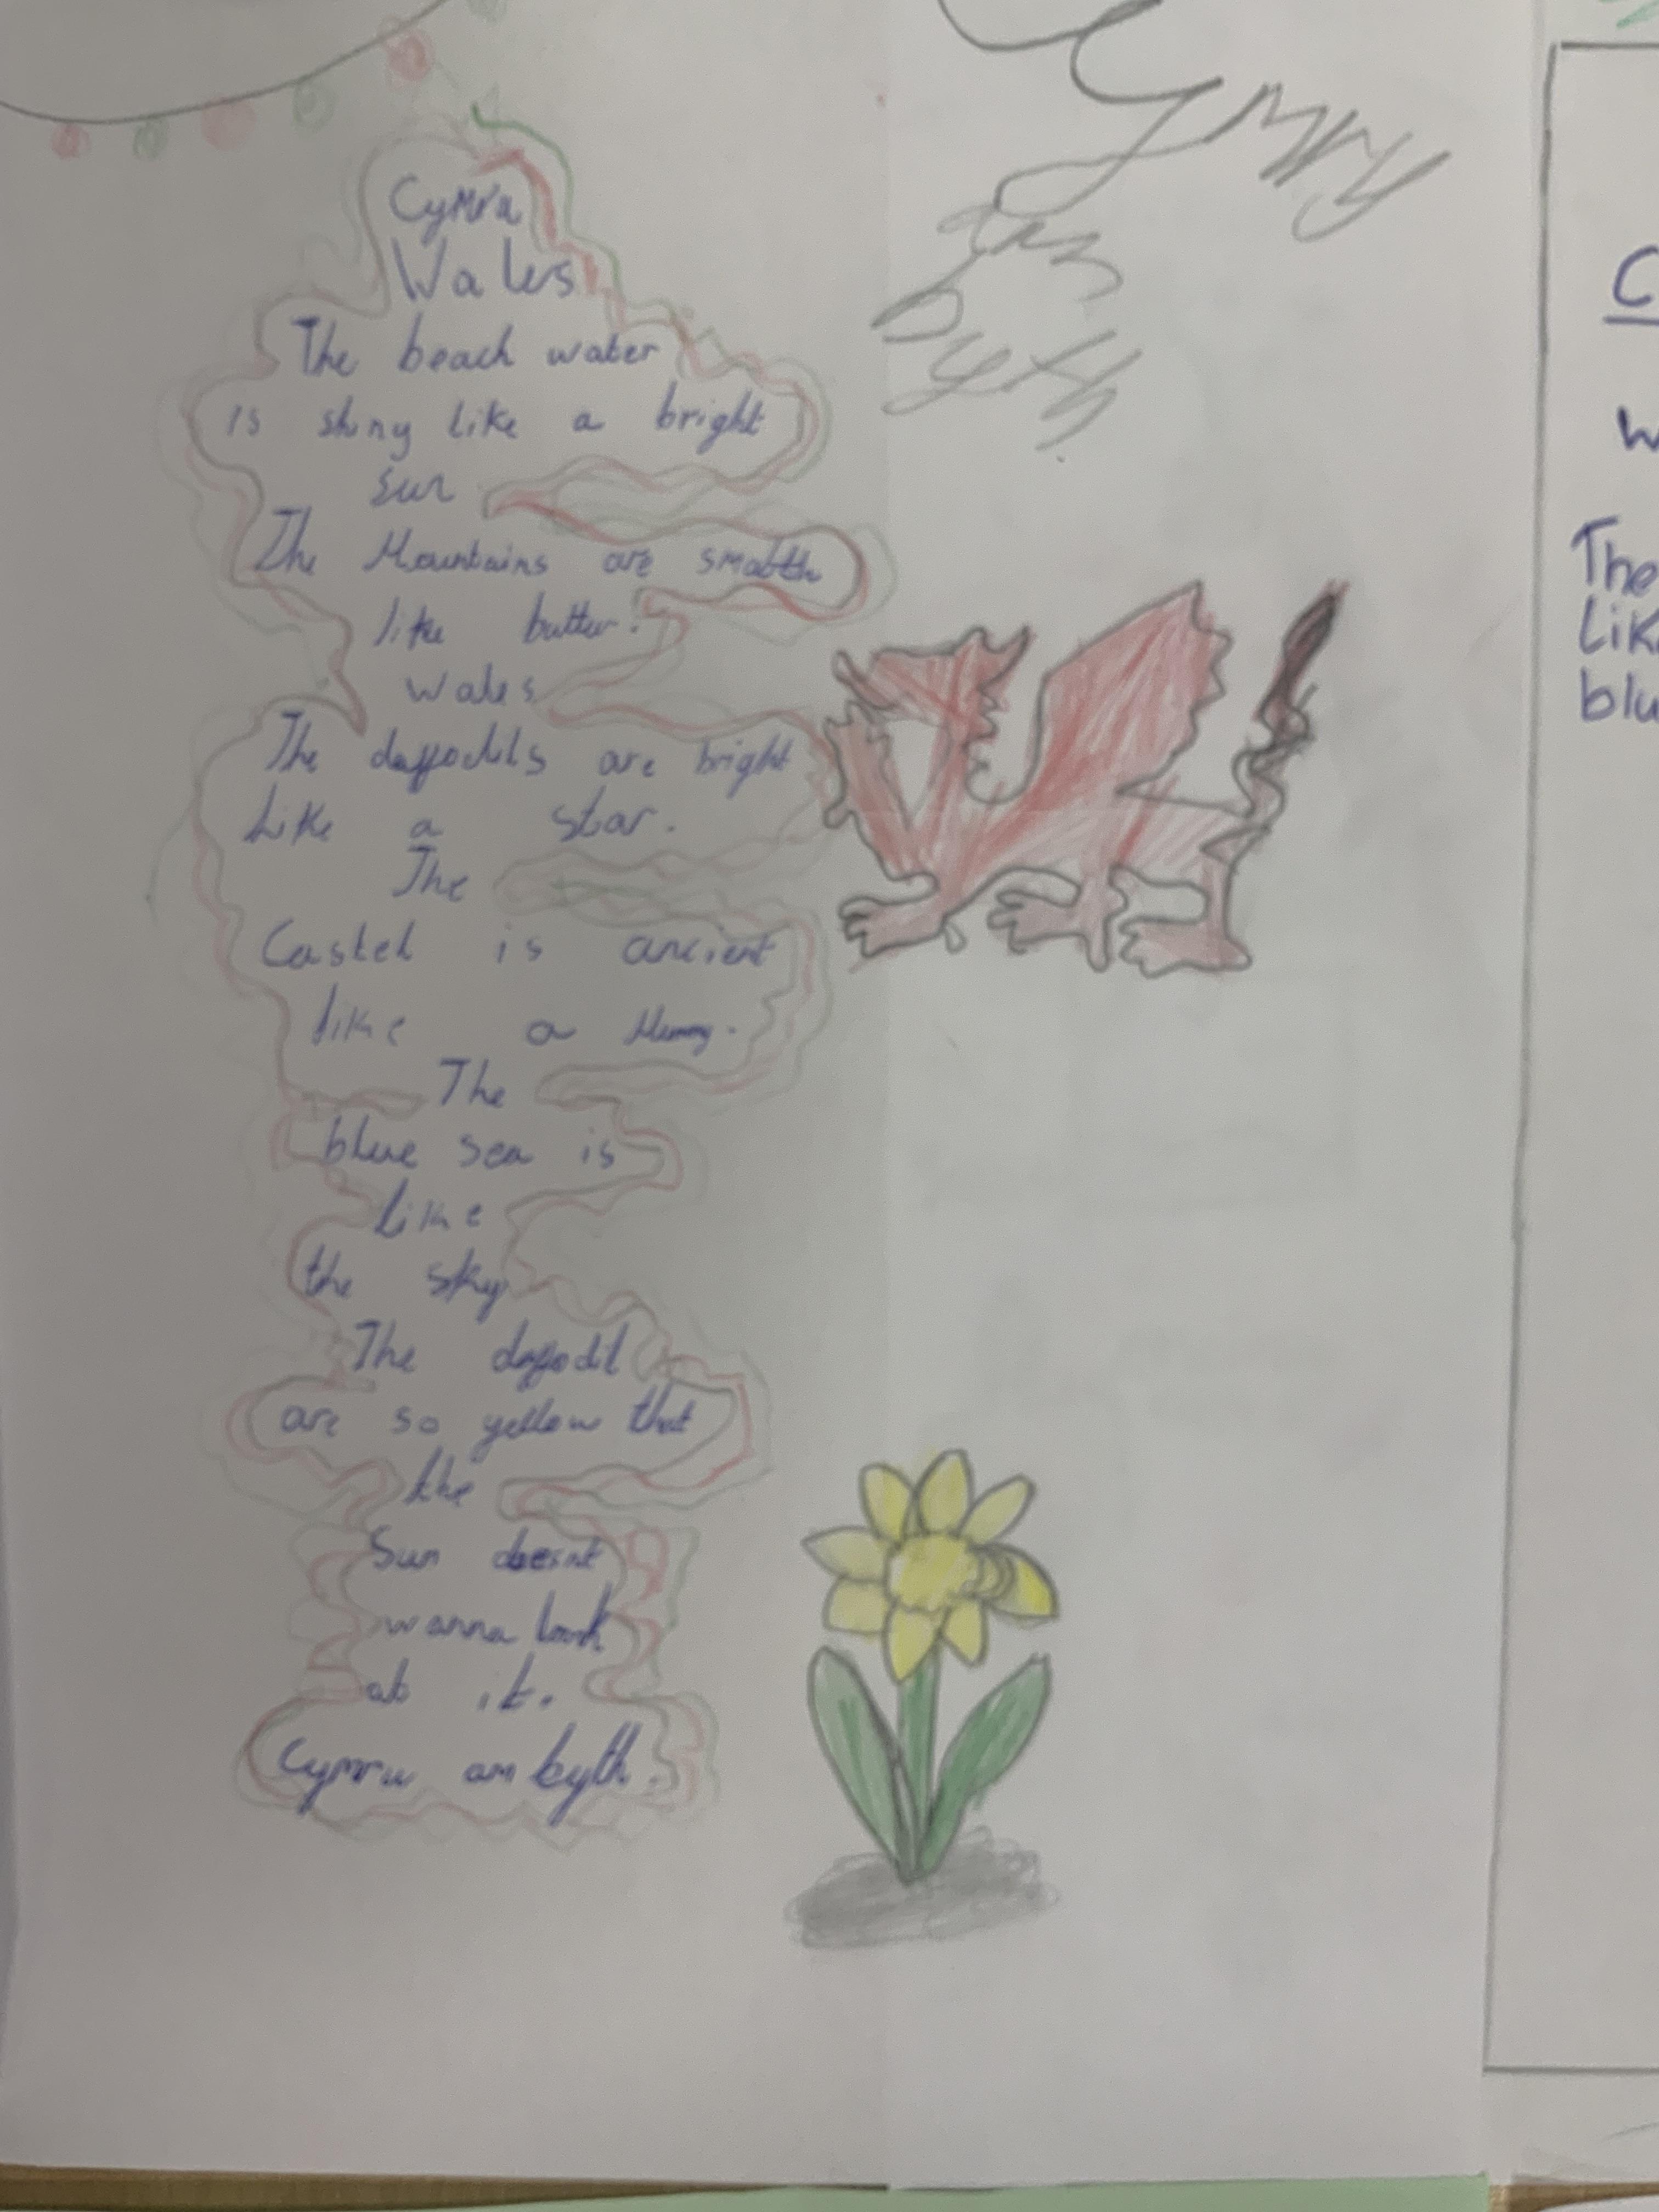 Cymru
Wales
The beach water
is shiny like a bright
sun
The Mountains are smooth
like butter.
Wales
The daffodils are bright
Like a star.
The
Castel is ancient
like a Mummy.
The
blue sea is
like
the sky
The daffodil
are so yellow that
the
Sun doesnt
wanna look
at it.
Cymru am byth.
Cymry
am
Byth
C
W
The
Lik
blu